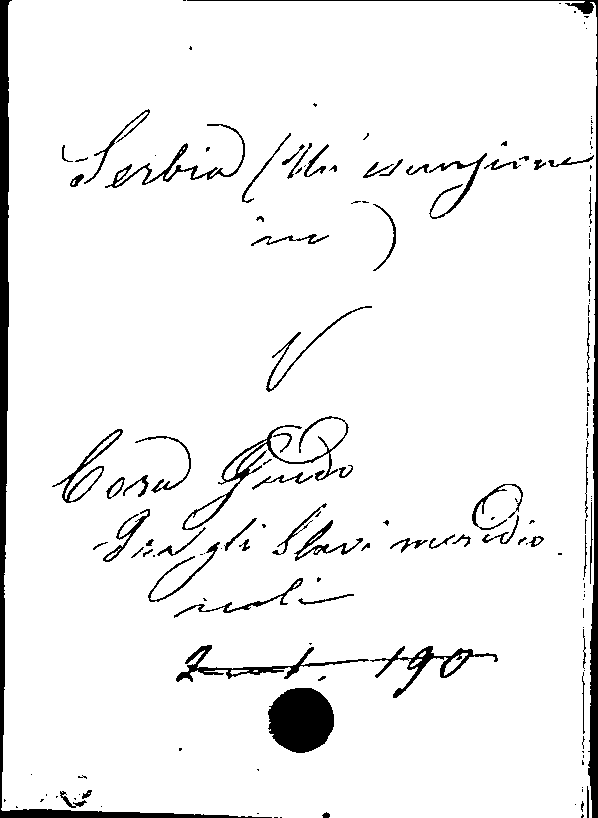 Serbia (Un' escursione
in)
V
Cora Guido
Fra gli Slavi meridio
nali
190